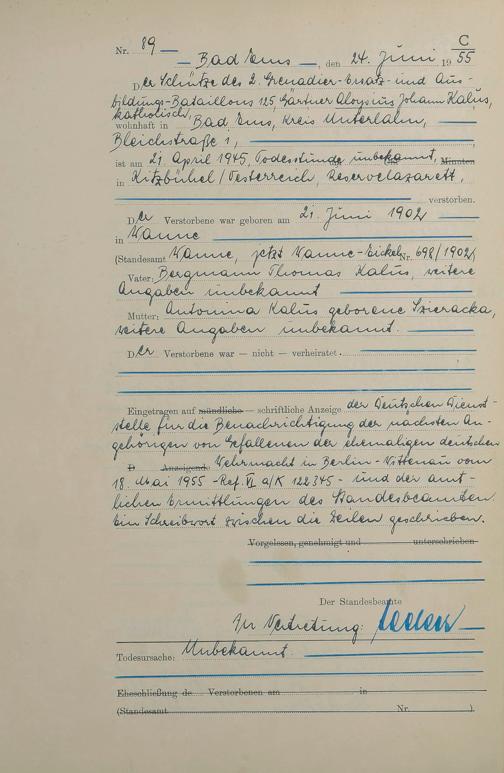 C
Nr. 89
Bad Ems, den 24. Juni 1955
Der Schütze des 2. Grenadier-Ersatz- und Aus-
bildungs-Bataillons 125, Gärtner Aloysius Johann Kalus,
katholisch,
wohnhaft in Bad Ems, Kreis Unterlahn,
Bleichstraße 1,
ist am 21. April 1945, Todesstunde unbekannt, Uhr Minuten
in Kitzbühel/Oesterreich, Reservelazarett,
verstorben.
Der Verstorbene war geboren am 21. Juni 1902
in Wanne
(Standesamt Wanne, jetzt Wanne-Eickel Nr. 698/1902)
Vater: Bergmann Thomas Kalus, weitere
Angaben unbekannt
Mutter: Antonina Kalus geborene Szieracka,
weitere Angaben unbekannt.
Der Verstorbene war — nicht — verheiratet.
Eingetragen auf mündliche — schriftliche Anzeige der Deutschen Dienst-
stelle für die Benachrichtigung der nächsten An-
gehörigen von Gefallenen der ehemaligen deutschen
D Anzeigende Wehrmacht in Berlin-Wittenau vom
18. Mai 1955 - Ref. VI a/K 122345 - und der amt-
lichen Ermittlungen des Standesbeamten.
Ein Schreibwort zwischen die Zeilen geschrieben.
Vorgelesen, genehmigt und unterschrieben
Der Standesbeamte
In Vertretung:
Todesursache: Unbekannt.
Eheschließung de Verstorbenen am in
(Standesamt Nr. )